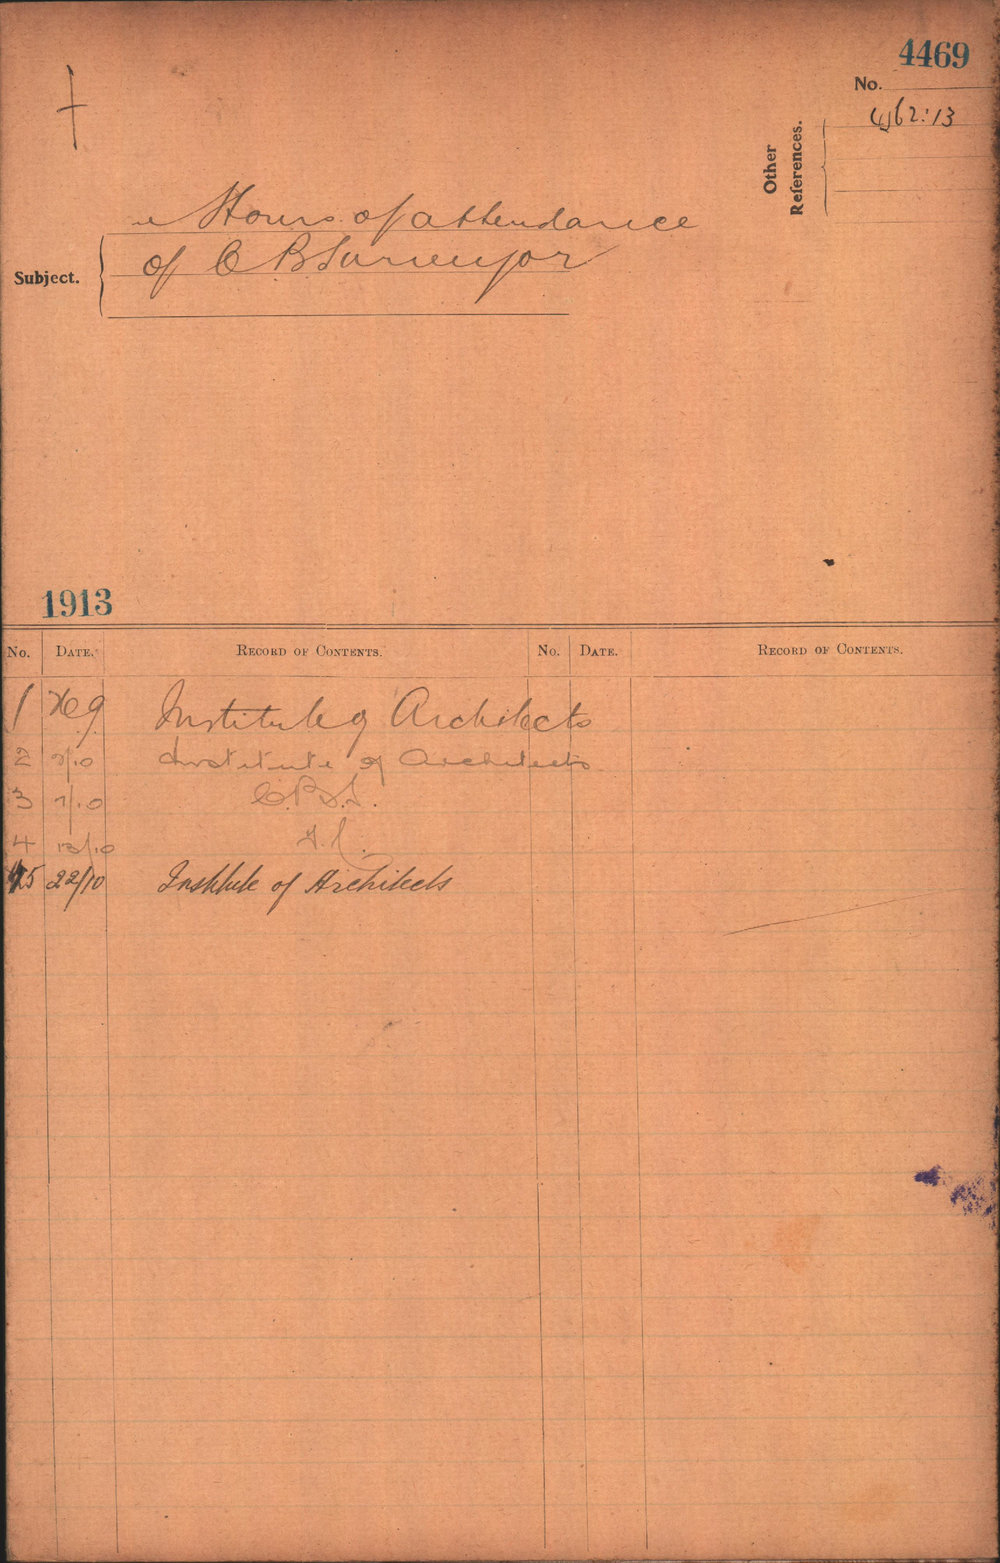 4469
No.
Other
References.
Hours of attendance
of C B Surveyor
Subject.
1913
No. DATE. RECORD OF CONTENTS. No. DATE. RECORD OF CONTENTS.
1 Institute of Architects
2 Institute of Architects
3 7/10 C.B.S.
4 13/10
5 22/10 Institute of Architects